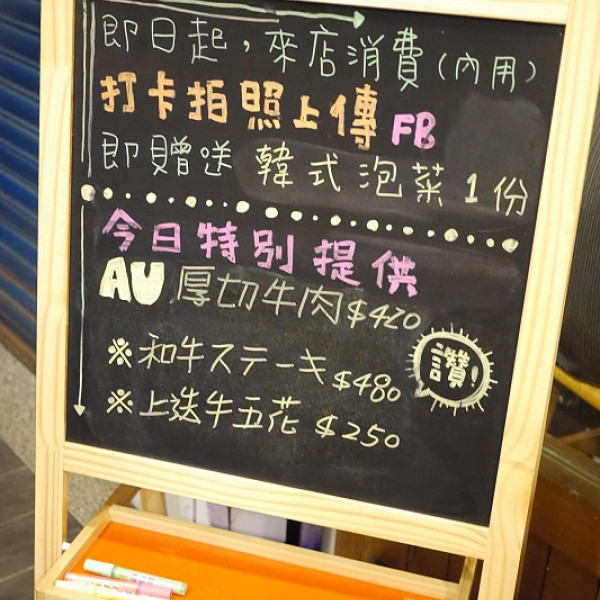 即日起，來店消費（內用）
打卡拍照上傳FB
即贈送 韓式泡菜1份
今日特別提供
AU厚切牛肉$420
※和牛ステーキ$480
讚!
※上选牛五花 $250